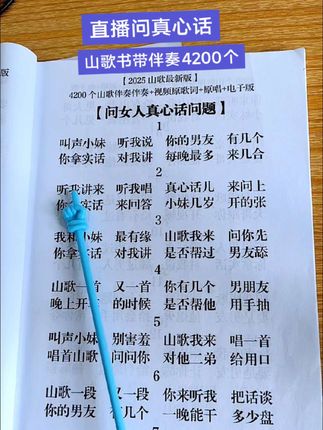 直播问真心话
山歌书带伴奏4200个
版】
【2025山歌最新版】
4200个山歌伴奏伴奏+视频原歌词+原唱+电子版
【问女人真心话问题】
1
叫声小妹 听我说 你的男友 有几个
你拿实话 对我讲 每晚最多 来几合
2
听我讲来 听我唱 真心话儿 来问上
你 实话 来回答 小妹几岁 开的张
3
我和小妹 最有缘 山歌我来 问你先
你拿实话 对我讲 是否帮过 男友舔
4
山歌一首 又一首 你有几个 男朋友
晚上开 的时候 是否帮他 用手抽
5
叫声小妹 别害羞 山歌我来 唱一首
唱首山歌 问问你 对他二弟 给用口
6
山歌一段 又一段 你来听我 把话谈
你的男友 有几个 一晚能干 多少盘